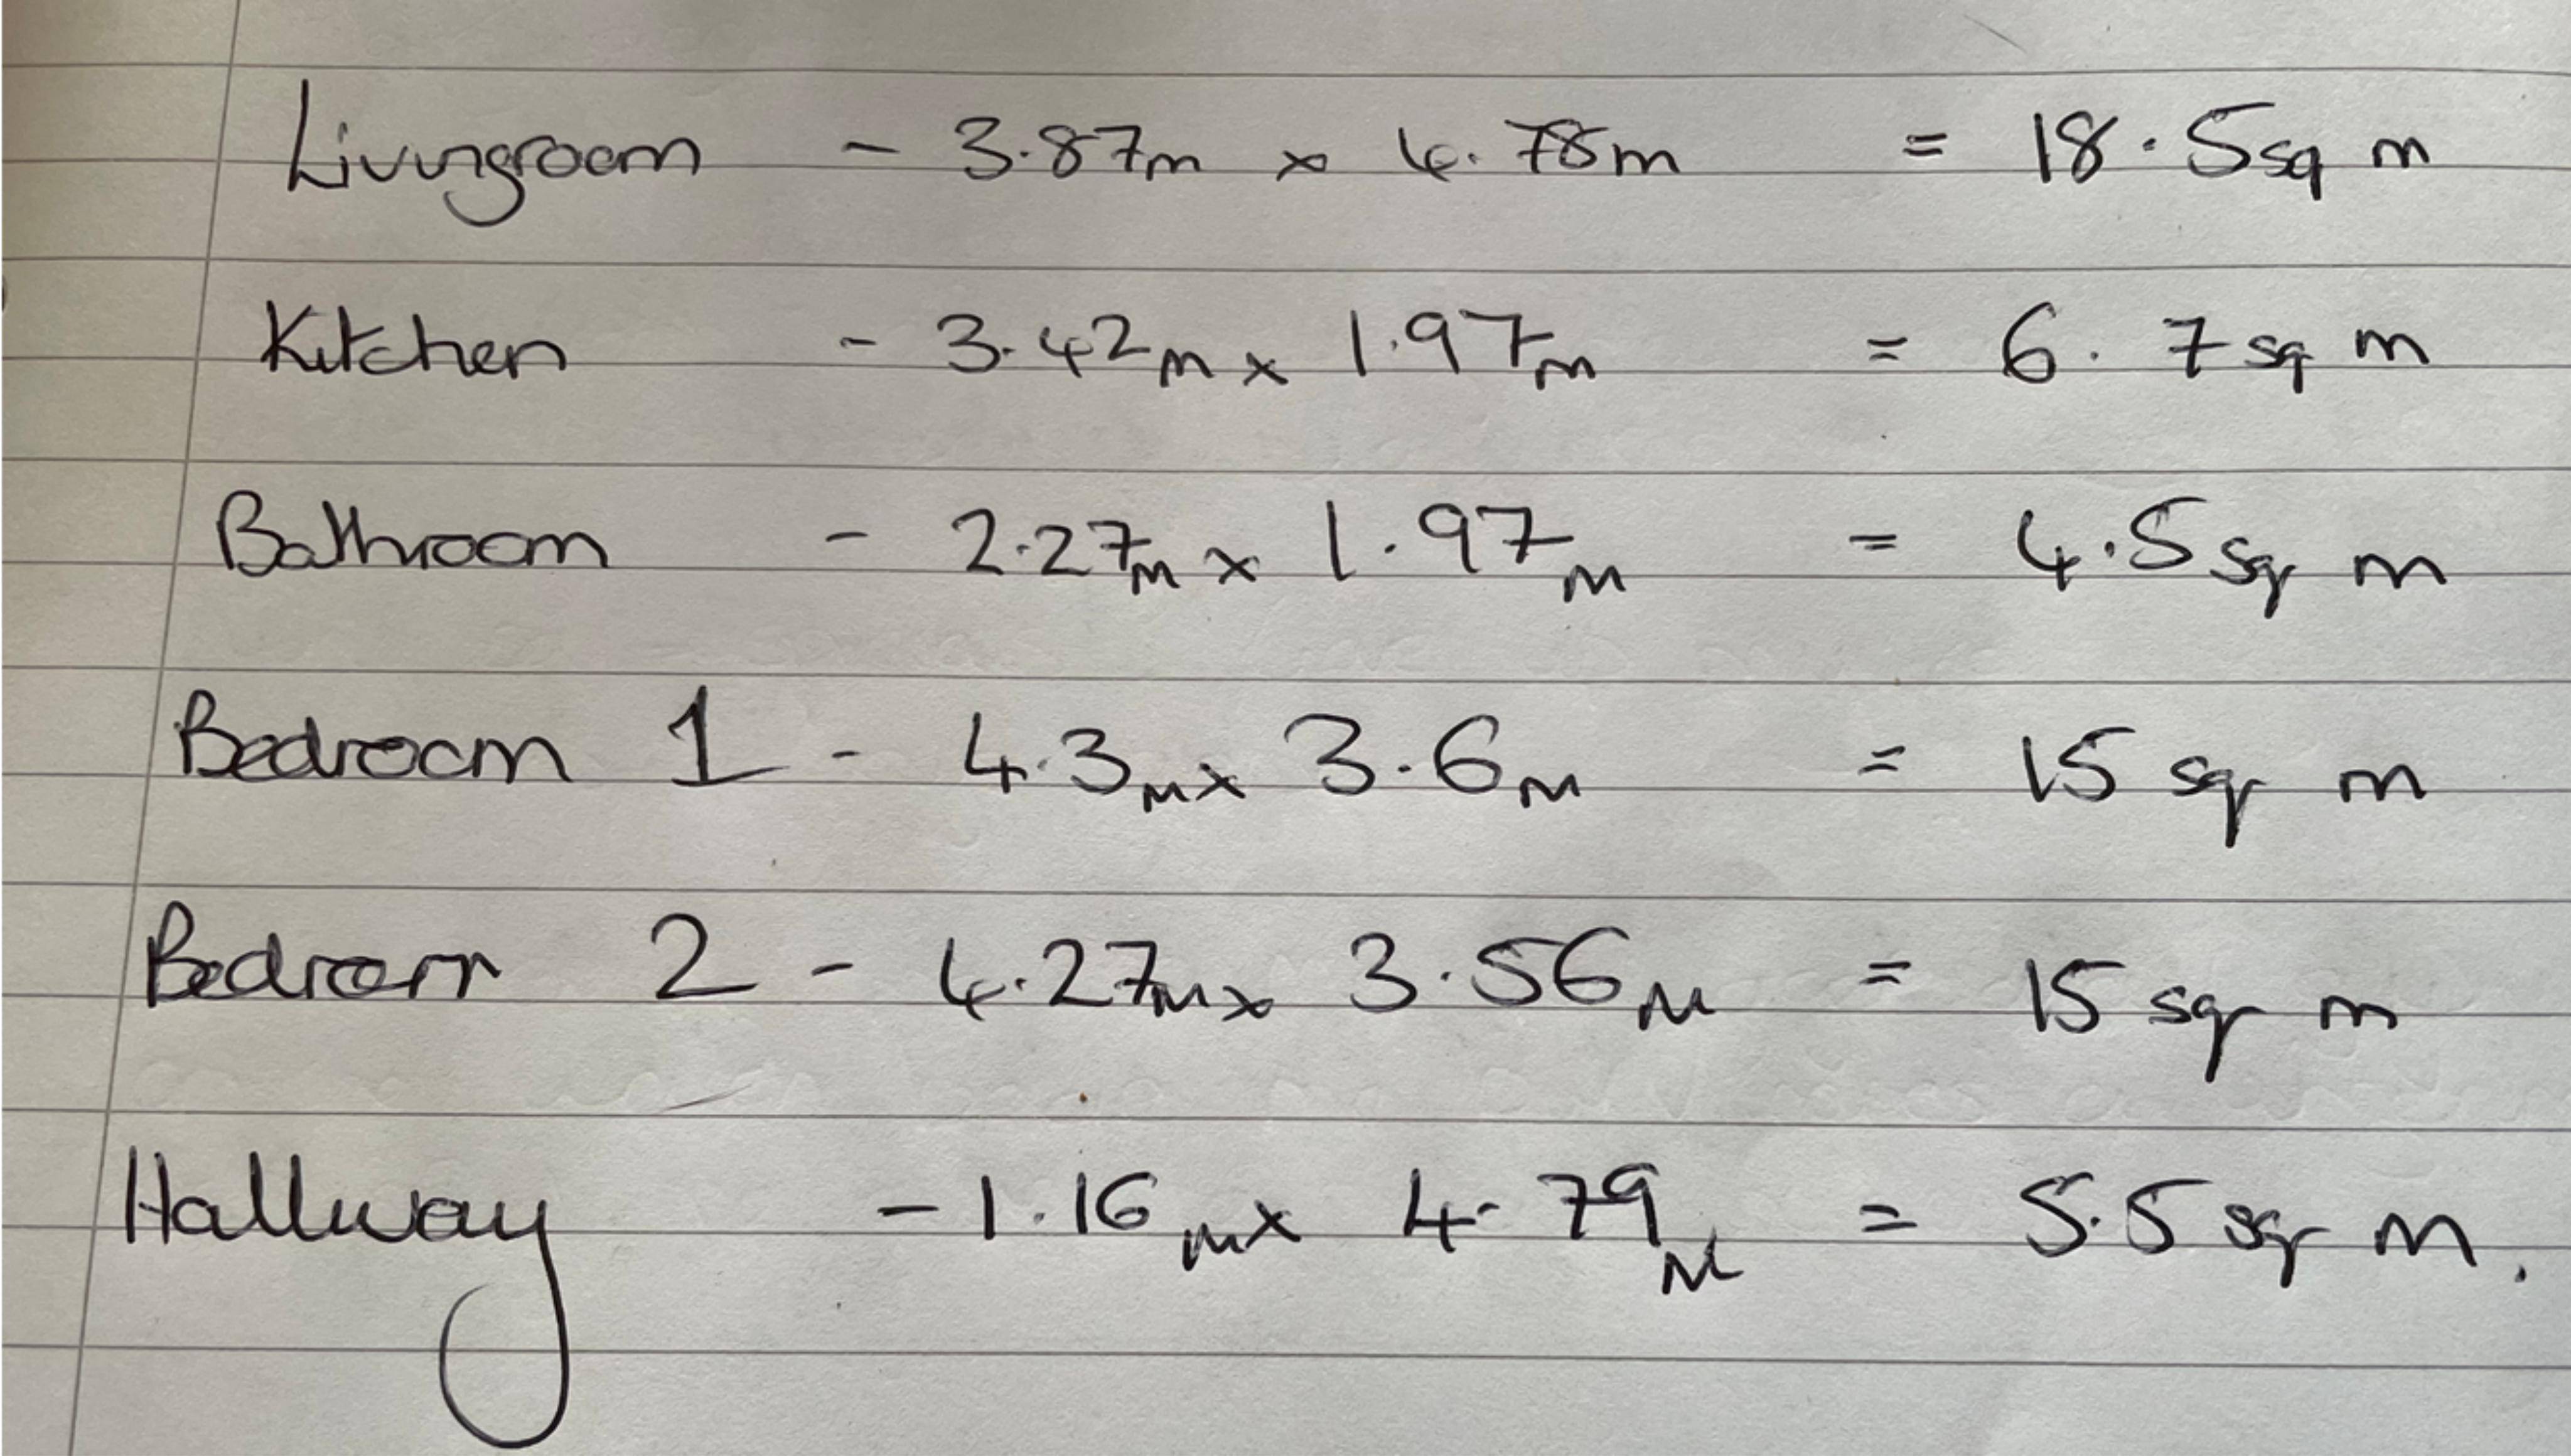 Livingroom - 3.87m x 4.78m = 18.5sq m
Kitchen - 3.42m x 1.97m = 6.7sq m
Bathroom - 2.27m x 1.97m = 4.5sq m
Bedroom 1 - 4.3m x 3.6m = 15 sq m
Bedroom 2 - 4.27m x 3.56m = 15 sq m
Hallway - 1.16m x 4.79m = 5.5 sq m.